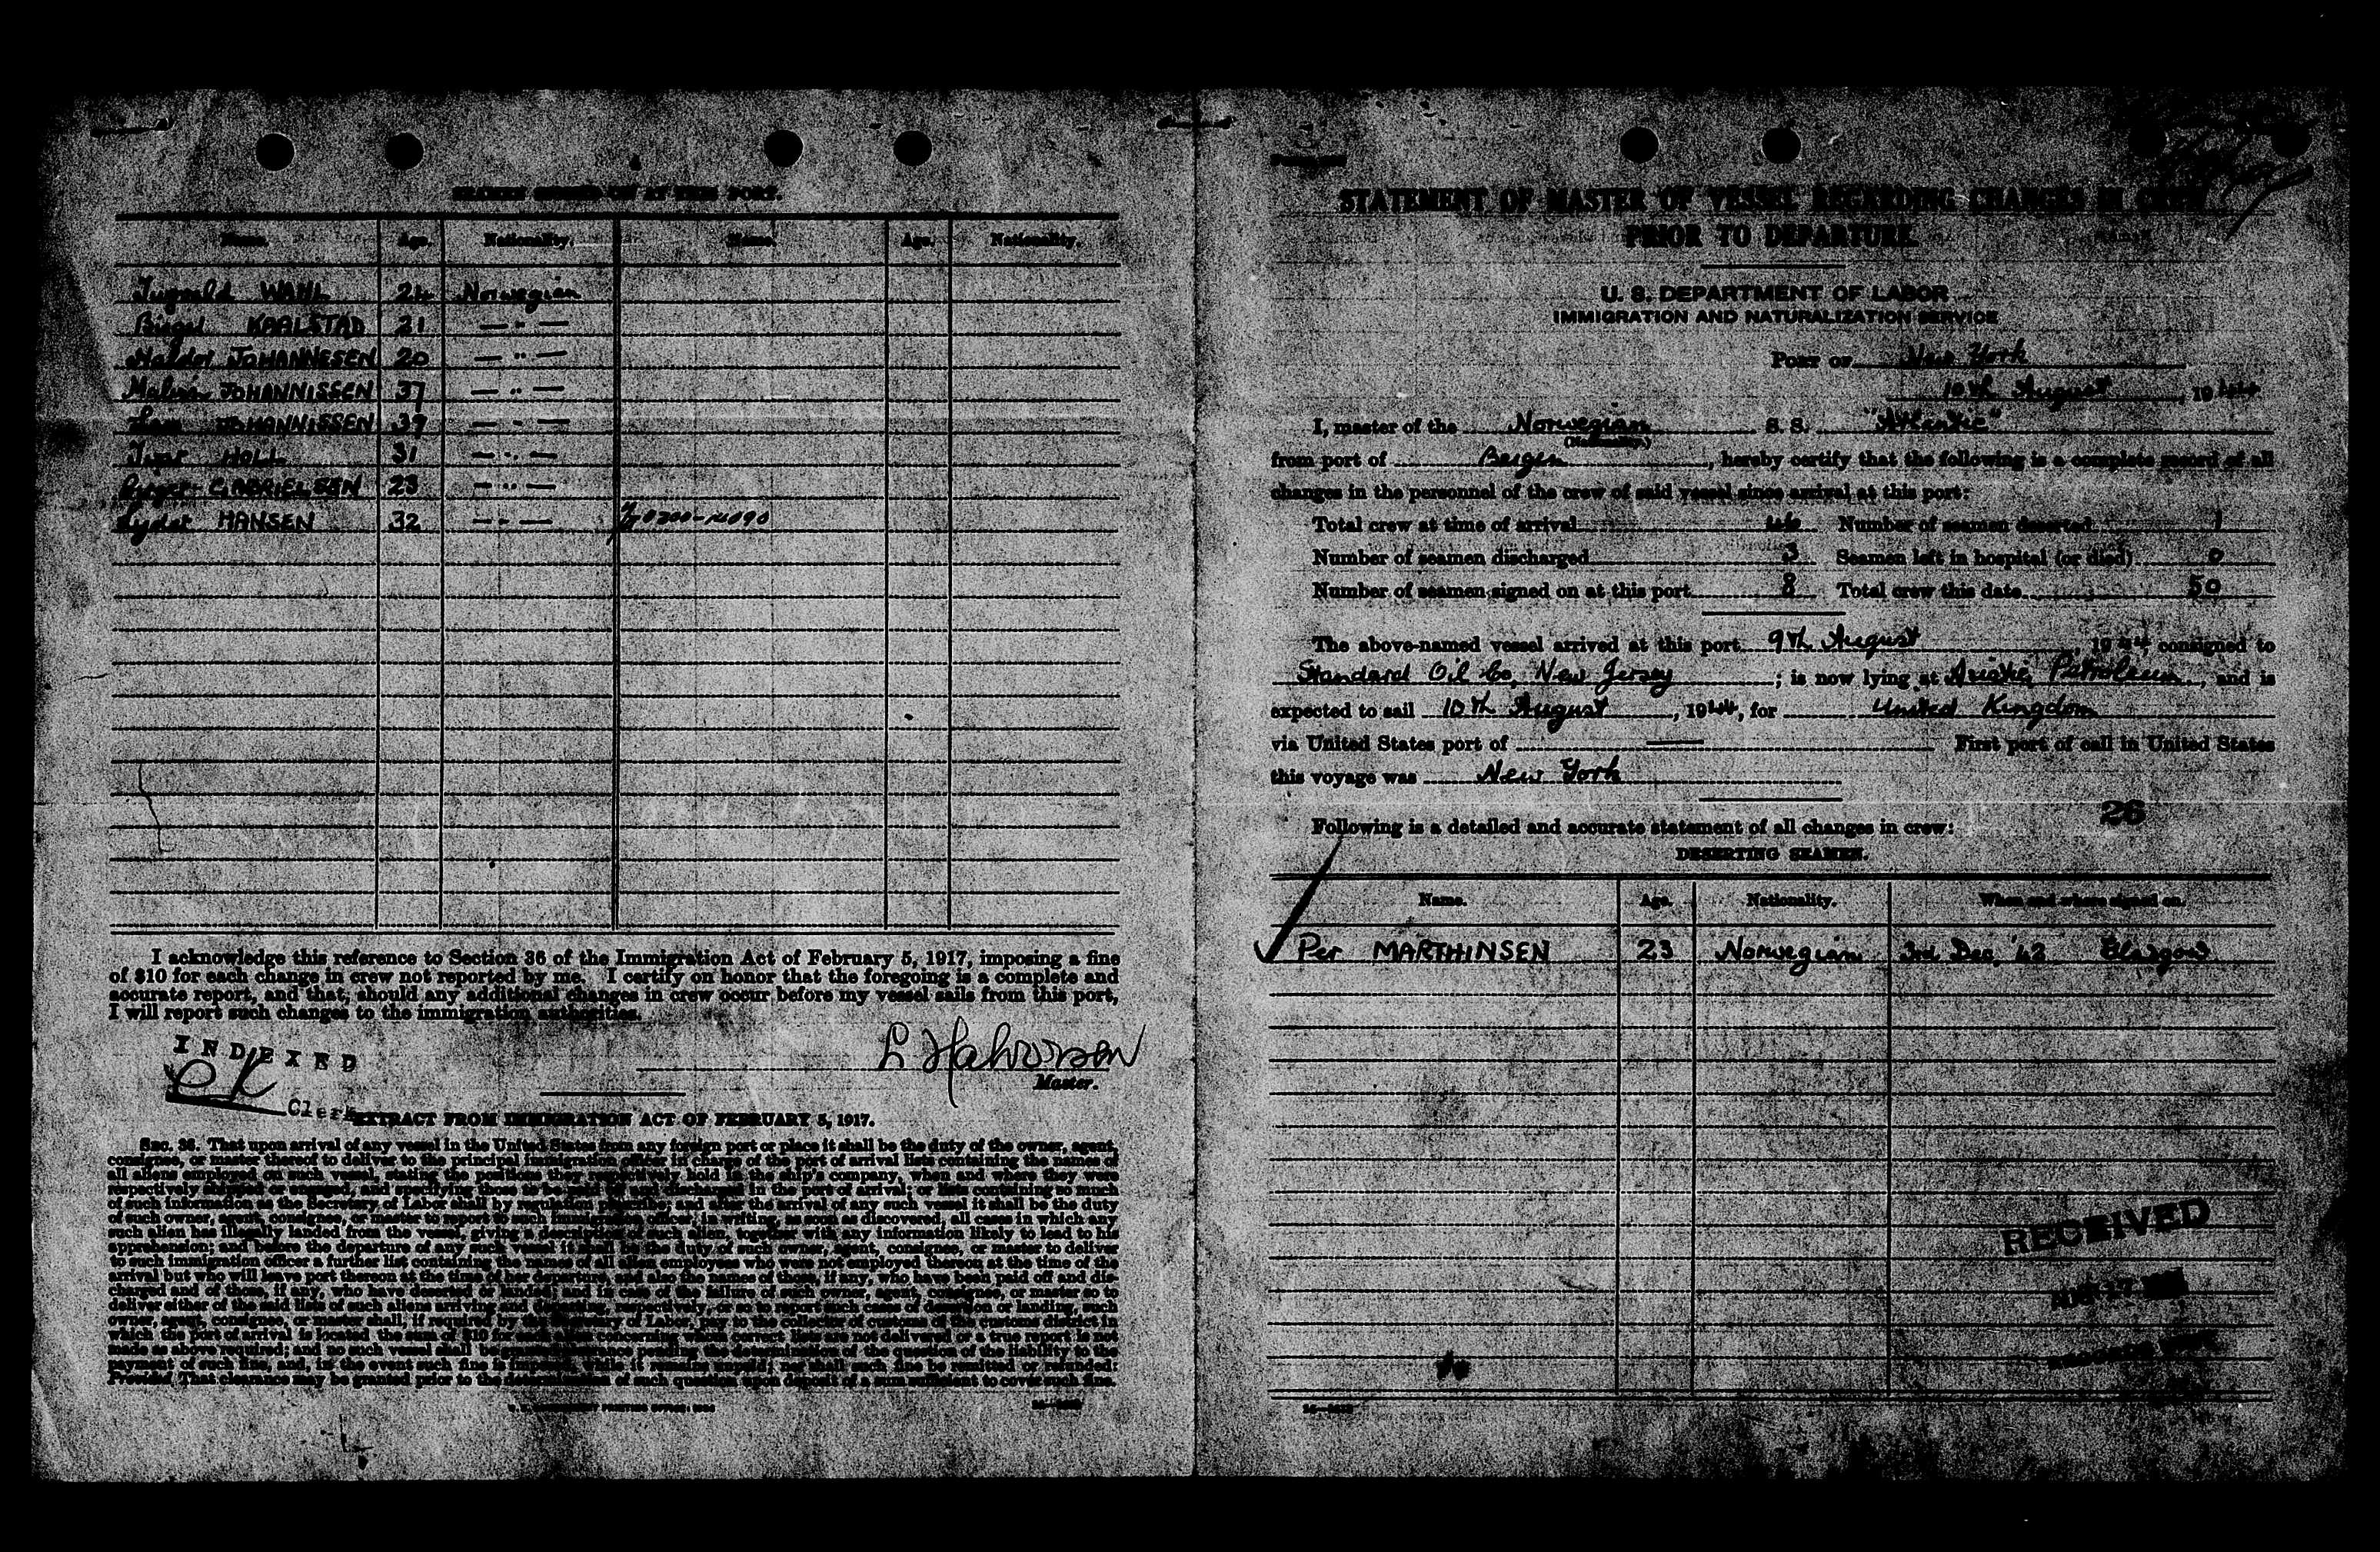 SEAMEN SIGNED ON AT THIS PORT.
Name. Age. Nationality. Name. Age. Nationality.
WAHL 24 Norwegian
Birger KARLSTAD 21 — " —
Haldor JOHANNESEN 20 — " —
JOHANNISSEN 37 — " —
JOHANNISSEN 39 — " —
HOLL 31 — " —
Birger GABRIELSEN 23 — " —
Lyder HANSEN 32 — " —
I acknowledge this reference to Section 36 of the Immigration Act of February 5, 1917, imposing a fine
of $10 for each change in crew not reported by me. I certify on honor that the foregoing is a complete and
accurate report, and that, should any additional changes in crew occur before my vessel sails from this port,
I will report such changes to the immigration authorities.
INDEXED
L Halvorsen
Master.
Clerk
EXTRACT FROM IMMIGRATION ACT OF FEBRUARY 5, 1917.
SEC. 36. That upon arrival of any vessel in the United States from any foreign port or place it shall be the duty of the owner, agent,
consignee, or master thereof to deliver to the principal immigration officer in charge of the port of arrival lists containing the names of
all aliens employed on such vessel, stating the positions they respectively hold in the ship's company, when and where they were
respectively shipped or engaged, and specifying those to be paid off and discharged in the port of arrival; or lists containing so much
of such information as the Secretary of Labor shall by regulation prescribe; and after the arrival of any such vessel it shall be the duty
of such owner, agent, consignee, or master to report to such immigration officer, in writing, as soon as discovered, all cases in which any
such alien has illegally landed from the vessel, giving a description of such alien, together with any information likely to lead to his
apprehension; and before the departure of any such vessel it shall be the duty of such owner, agent, consignee, or master to deliver
to such immigration officer a further list containing the names of all alien employees who were not employed thereon at the time of the
arrival but who will leave port thereon at the time of her departure, and also the names of those, if any, who have been paid off and dis-
charged and of those, if any, who have deserted or landed; and in case of the failure of such owner, agent, consignee, or master so to
deliver either of the said lists of such aliens arriving and departing, respectively, or so to report such cases of desertion or landing, such
owner, agent, consignee, or master shall, if required by the Secretary of Labor, pay to the collector of customs of the customs district in
which the port of arrival is located the sum of $10 for each alien concerning whom correct lists are not delivered or a true report is not
made as above required; and no such vessel shall be granted clearance pending the determination of the question of the liability to the
payment of such fine, and, in the event such fine is imposed, while it remains unpaid; nor shall such fine be remitted or refunded:
Provided, That clearance may be granted prior to the determination of such question upon deposit of a sum sufficient to cover such fine.
STATEMENT OF MASTER OF VESSEL REGARDING CHANGES IN CREW
PRIOR TO DEPARTURE.
U. S. DEPARTMENT OF LABOR
IMMIGRATION AND NATURALIZATION SERVICE
PORT OF New York
10th August, 1944
I, master of the Norwegian S. S. "Atlantic"
(Nationality.)
from port of Bergen, hereby certify that the following is a complete record of all
changes in the personnel of the crew of said vessel since arrival at this port:
Total crew at time of arrival 46 Number of seamen deserted 1
Number of seamen discharged 3 Seamen left in hospital (or died) 0
Number of seamen signed on at this port 8 Total crew this date 50
The above-named vessel arrived at this port 9th August, 1944, consigned to
Standard Oil Co, New Jersey; is now lying at Petroleum, and is
expected to sail 10th August, 1944, for United Kingdom
via United States port of — First port of call in United States
this voyage was New York
26
Following is a detailed and accurate statement of all changes in crew:
DESERTING SEAMEN.
Name. Age. Nationality. When and where signed on.
Per MARTHINSEN 23 Norwegian 3rd Dec, '42 Glasgow
RECEIVED